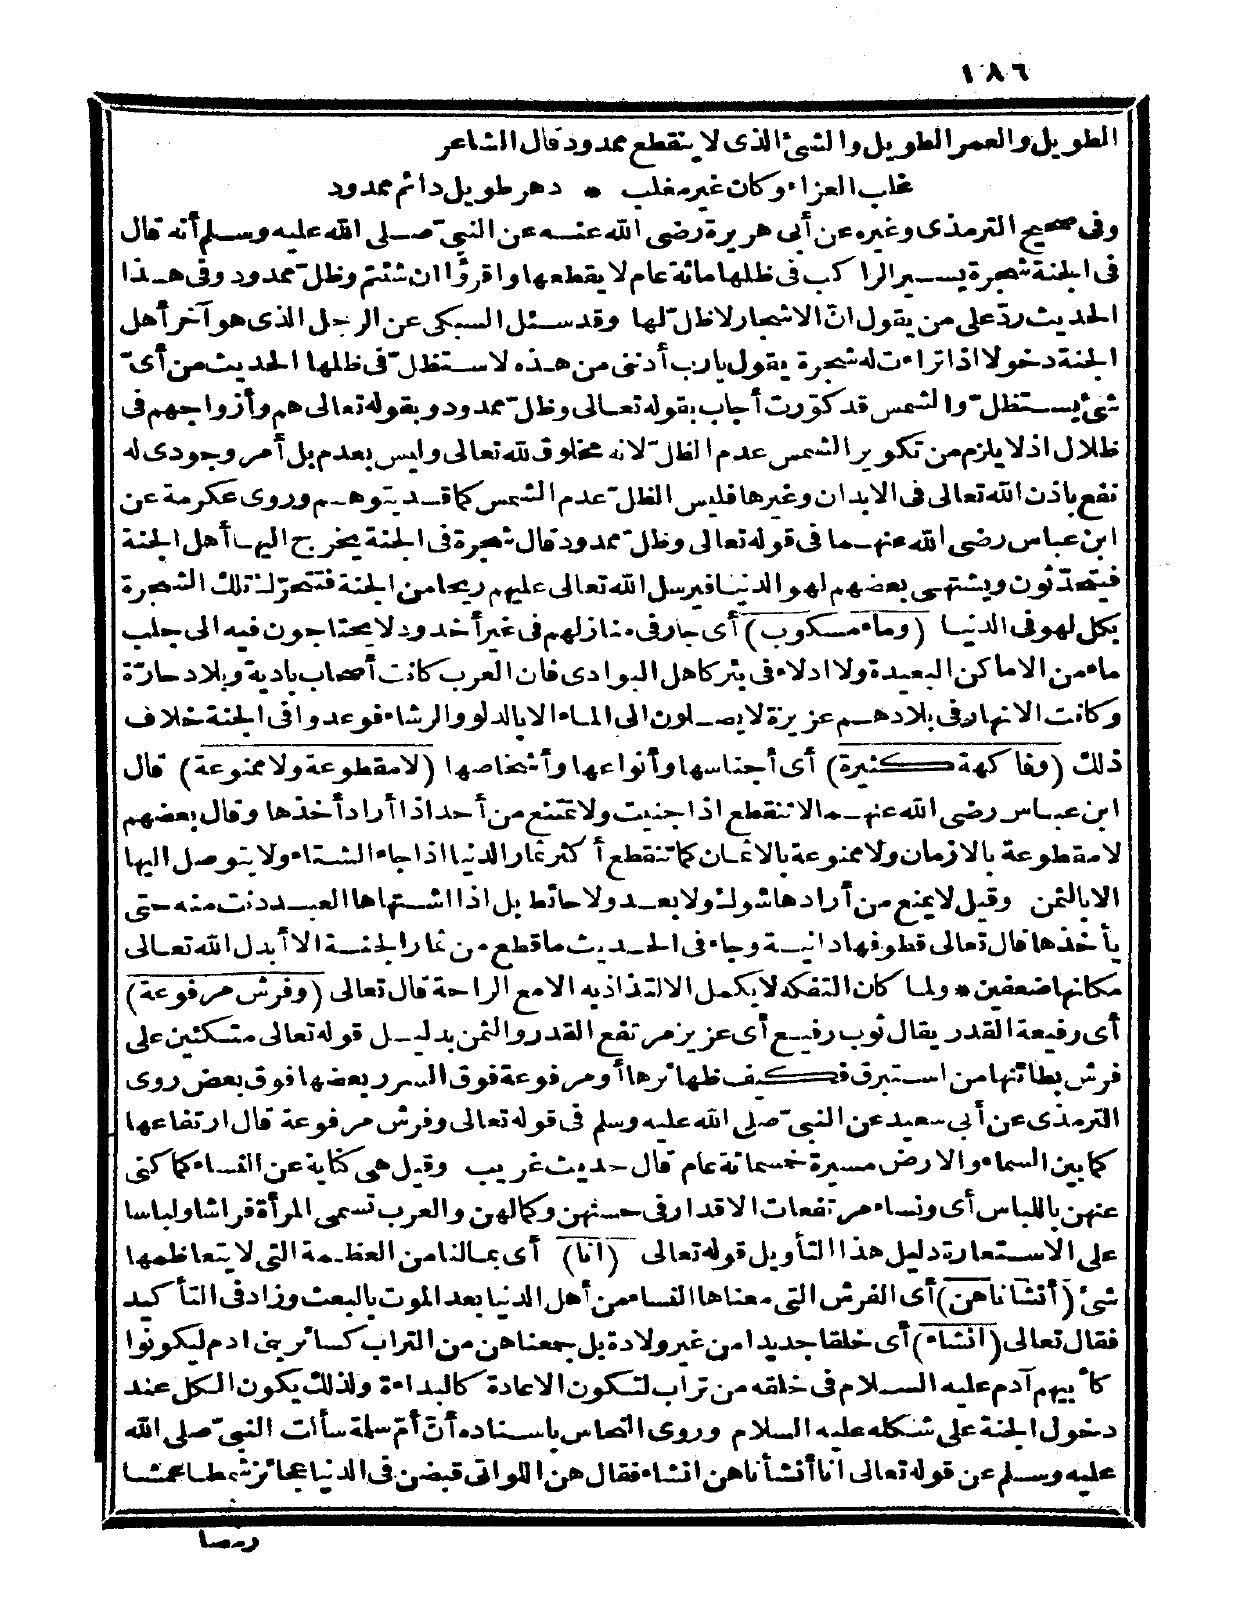 ١٨٦
الطويل والعمر الطويل والشئ الذى لا ينقطع ممدود قال الشاعر
غلب العزاء وكان غير مغلب * دهر طويل دائم ممدود
وفى صحيح الترمذى وغيره عن أبى هريرة رضى الله عنه عن النبىّ صلى الله عليه وسلم أنه قال
فى الجنة شجرة يسير الراكب فى ظلها مائة عام لا يقطعها واقرؤا ان شئتم وظلّ ممدود وفى هذا
الحديث ردّ على من يقول انّ الاشجار لا ظلّ لها وقد سئل السبكى عن الرجل الذى هو آخر أهل
الجنة دخولا اذا تراءت له شجرة يقول يارب أدننى من هذه لاستظلّ فى ظلها الحديث من أىّ
شئ يستظلّ والشمس قد كوّرت أجاب بقوله تعالى وظلّ ممدود وبقوله تعالى هم وأزواجهم فى
ظلال اذ لا يلزم من تكوير الشمس عدم الظلّ لانه مخلوق لله تعالى وليس بعدم بل أمر وجودى له
نفع باذن الله تعالى فى الابدان وغيرها فليس الظلّ عدم الشمس كما قد يتوهم وروى عكرمة عن
ابن عباس رضى الله عنهما فى قوله تعالى وظلّ ممدود قال شجرة فى الجنة يخرج اليها أهل الجنة
فيتحدّثون ويشتهى بعضهم لهو الدنيا فيرسل الله تعالى عليهم ريحا من الجنة فتتحرّك تلك الشجرة
بكل لهو فى الدنيا (وماء مسكوب) أى جار فى منازلهم فى غير أخدود لا يحتاجون فيه الى جلب
ماء من الاماكن البعيدة ولا ادلاء فى بئر كاهل البوادى فان العرب كانت أصحاب بادية وبلاد حارّة
وكانت الانهار فى بلادهم عزيزة لا يصلون الى الماء الا بالدلو والرشاء فوعدوا فى الجنة خلاف
ذلك (وفاكهة كثيرة) أى أجناسها وأنواعها وأشخاصها (لا مقطوعة ولا ممنوعة) قال
ابن عباس رضى الله عنهما لا تنقطع اذا جنيت ولا تمتنع من أحد اذا أراد أخذها وقال بعضهم
لا مقطوعة بالازمان ولا ممنوعة بالاثمان كما تنقطع أكثر ثمار الدنيا اذا جاء الشتاء ولا يتوصل اليها
الا بالثمن وقيل لا يمنع من أرادها شوك ولا بعد ولا حائط بل اذا اشتهاها العبد دنت منه حتى
يأخذها قال تعالى قطوفها دانية وجاء فى الحديث ما قطع من ثمار الجنة الا أبدل الله تعالى
مكانها ضعفين * ولما كان التفكه لا يكمل الالتذاذ به الا مع الراحة قال تعالى (وفرش مرفوعة)
أى رفيعة القدر يقال ثوب رفيع أى عزيز مرتفع القدر والثمن بدليل قوله تعالى متكئين على
فرش بطائنها من استبرق فكيف ظهائرها أو مرفوعة فوق السرر بعضها فوق بعض روى
الترمذى عن أبى سعيد عن النبىّ صلى الله عليه وسلم فى قوله تعالى وفرش مرفوعة قال ارتفاعها
كما بين السماء والارض مسيرة خمسمائة عام قال حديث غريب وقيل هى كناية عن النساء كما كنى
عنهن باللباس أى ونساء مرتفعات الاقدار فى حسنهن وكمالهن والعرب تسمى المرأة فراشا ولباسا
على الاستعارة دليل هذا التأويل قوله تعالى (انا) أى بمالنا من العظمة التى لا يتعاظمها
شئ (أنشأناهن) أى الفرش التى معناها النساء من أهل الدنيا بعد الموت بالبعث وزاد فى التأكيد
فقال تعالى (انشاء) أى خلقا جديدا من غير ولادة بل جمعناهن من التراب كسائر بنى ادم ليكونوا
كأبيهم آدم عليه السلام فى خلقه من تراب لتكون الاعادة كالبداءة ولذلك يكون الكل عند
دخول الجنة على شكله عليه السلام وروى النحاس باسناده أنّ أمّ سلمة سألت النبىّ صلى الله
عليه وسلم عن قوله تعالى انا أنشأناهن انشاء فقال هن اللواتى قبضن فى الدنيا عجائز شمطا عمشا
رمصا